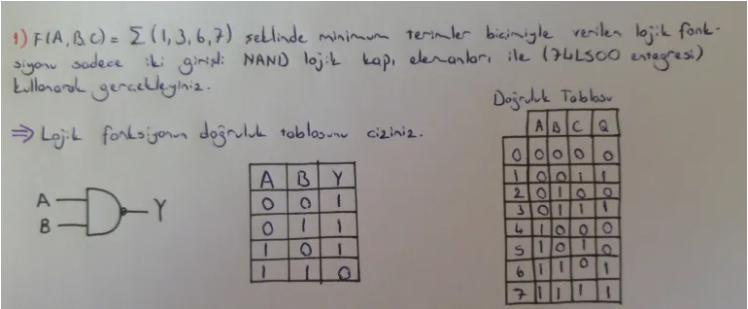 1) F(A,B,C) = Σ (1,3,6,7) şeklinde minimum terimler biçimiyle verilen lojik fonk-
siyonu sadece iki girişli NAND lojik kapı elemanları ile (74LS00 entegresi)
kullanarak gerçekleyiniz.
Doğruluk Tablosu
⇒ Lojik fonksiyonun doğruluk tablosunu çiziniz.
A B Y
A B Y
0 0 1
0 1 1
1 0 1
1 1 0
A B C Q
0 0 0 0 0
1 0 0 1 1
2 0 1 0 0
3 0 1 1 1
4 1 0 0 0
5 1 0 1 0
6 1 1 0 1
7 1 1 1 1